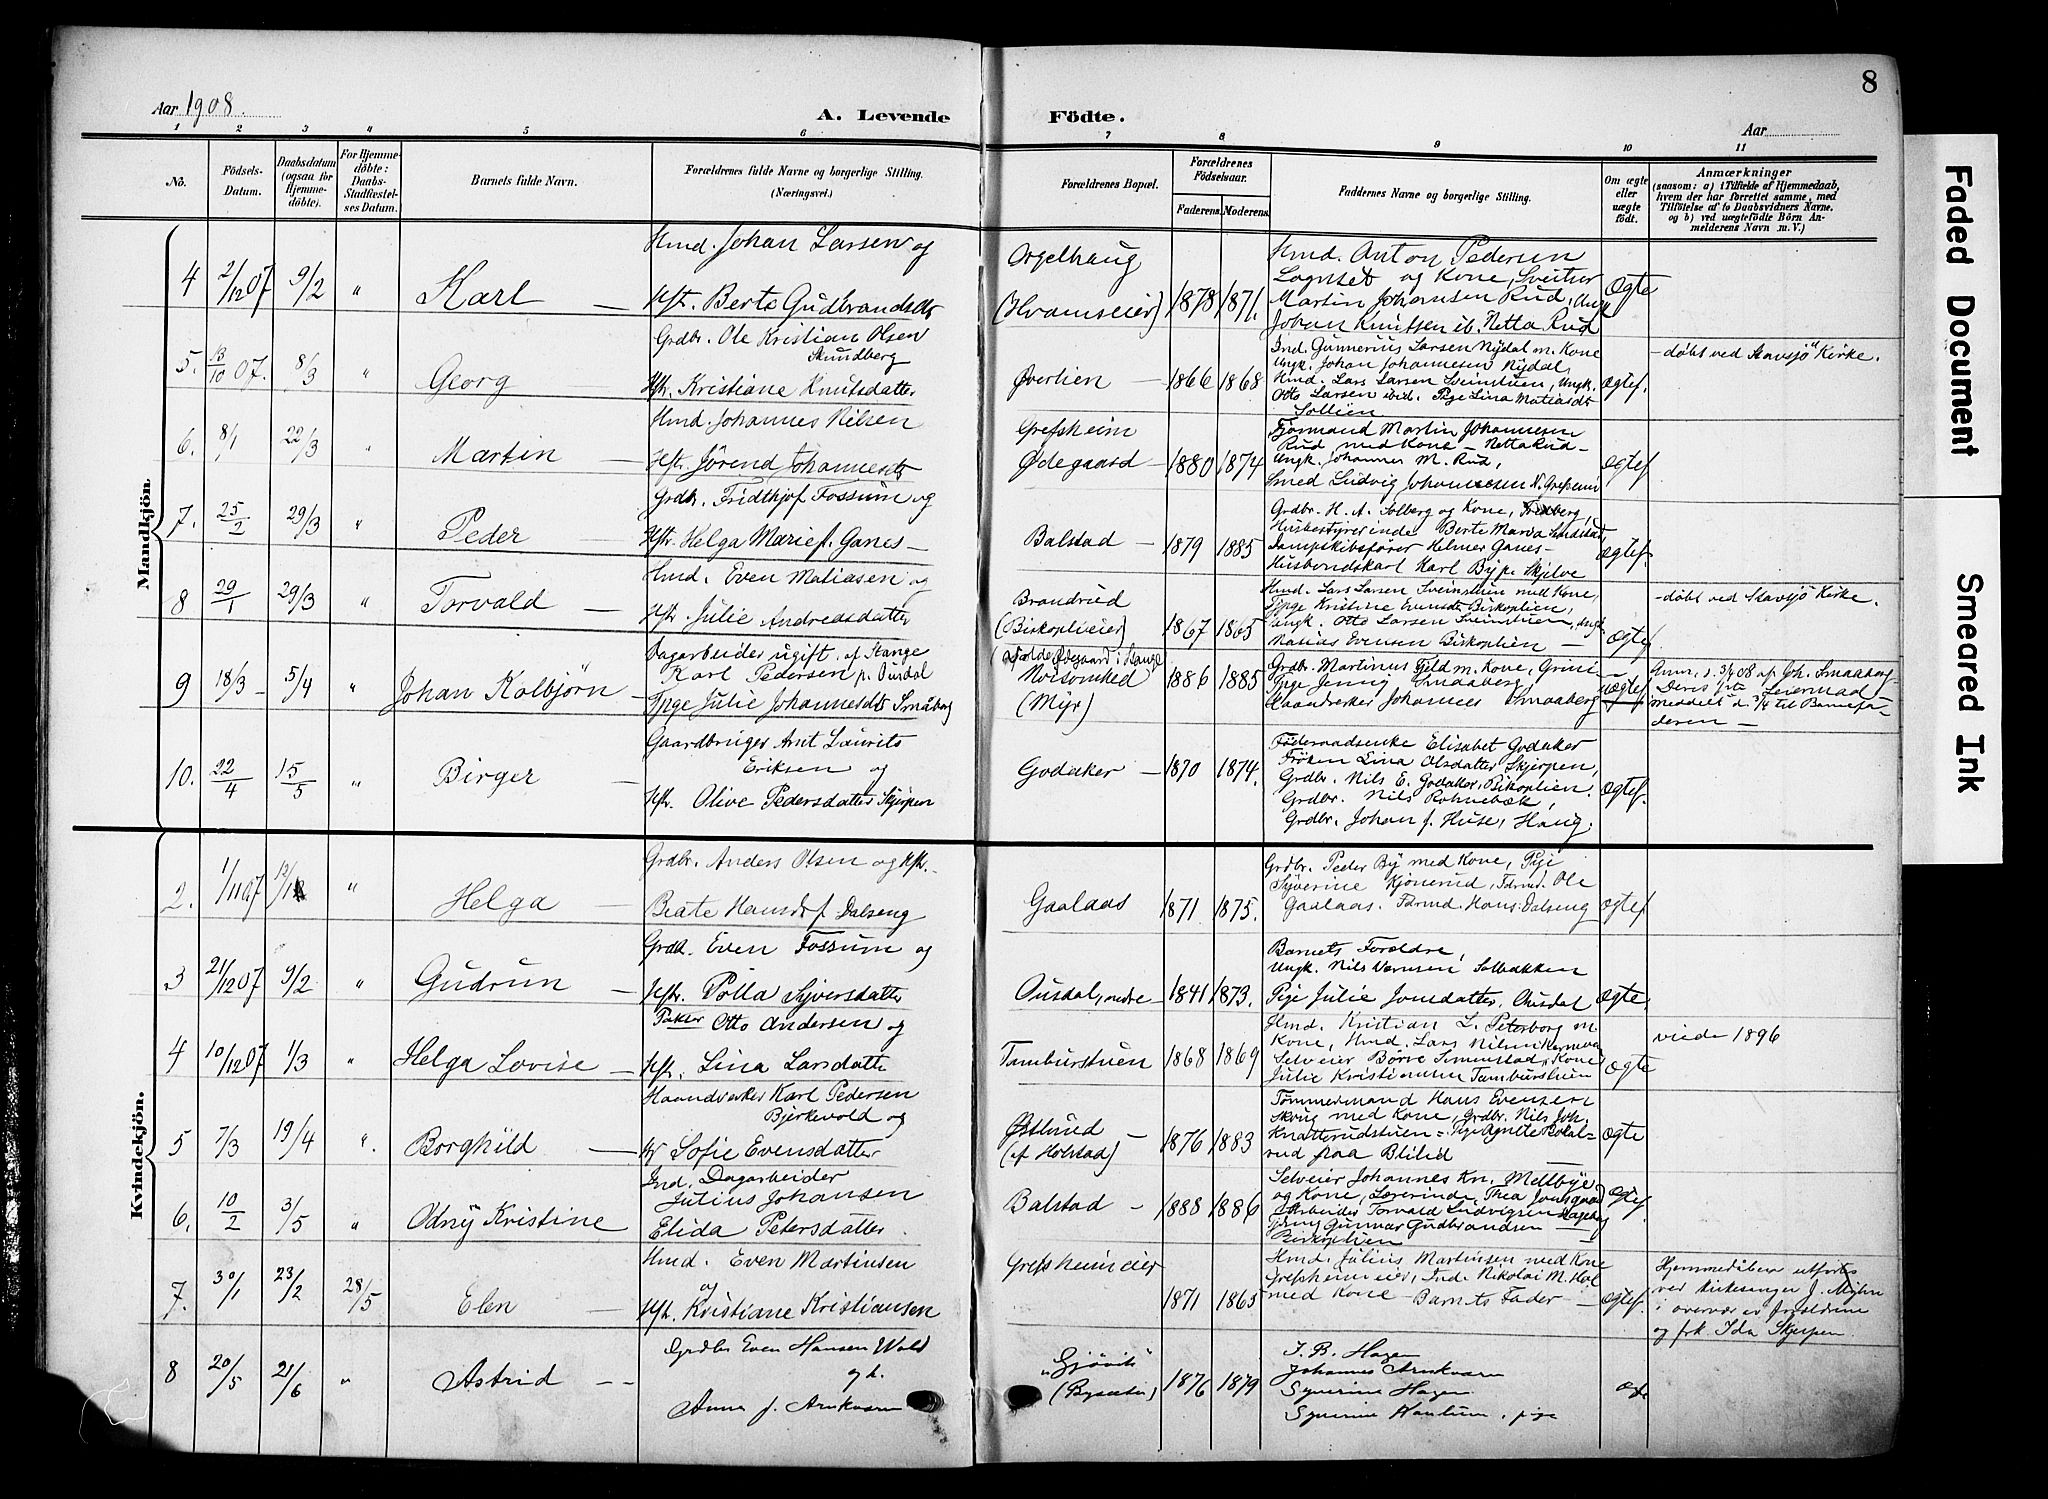 8
Aar 1908.
A. Levende Födte.
Aar
1 2 3 4 5 6 7 8 9 10 11
No.
Födsels-Datum.
Daabsdatum (ogsaa for Hjemmedöbte).
For Hjemmedöbte: Daabs-Stadfæstelses Datum.
Barnets fulde Navn.
Forældrenes fulde Navne og borgerlige Stilling.
(Næringsvei.)
Forældrenes Bopæl.
Forældrenes Födselsaar.
Faderens. Moderens.
Faddernes Navne og borgerlige Stilling.
Om ægte eller uægte født.
Anmærkninger
(saasom: a) i Tilfælde af Hjemmedaab,
hvem der har forrettet samme, med
Tilføielse af to Daabsvidners Navne.
og b) ved uægtefödte Börn An-
melderens Navn m. V.)
Mandkjön.
4 2/12 07 9/2 " Karl —
Hmd. Johan Larsen og
Hst. Berte Gudbrandsdtr
Orgelhaug
(Hvamseier)
1878 1871.
Hmd. Anton Pedersen
Lognset og Kone, Sveitser
Martin Johansen Rud, Ungk.
Johan Knutsen ib. Netta Rud
Ægte
5. 13/10 07. 8/3 " Georg
Grdbr. Ole Kristian Olsen
Skundberg
Hst. Kristiane Knutsdatter
Øverlien — 1866 1868
Ind. Gunnerius Larsen Nydal m. Kone
Ungk. Johan Johannesen Nydal,
Hmd. Lars Larsen Sveinstuen, Ungk.
Otto Larsen ibid. Pige Lina Matiasdtr
Sollien
Ægtef.
- døbt ved Stavsjø Kirke.
6. 8/1 22/3 " Martin —
Hmd. Johannes Nilsen
Hst. Jørend Johannesdtr
Grefsheim
Ødegaard — 1880 1874
Fjørmand Martin Johannesen
Rud med Kone — Netta Rud —
Ungk. Johannes M. Rud,
Smed Ludvig Johannessen N. Grefsheim
Ægtef
7. 25/2 29/3 " Peder —
Grdbr. Fridthjof Fossum og
Hst. Helga Marie f. Ganes —
Balstad — 1879 1885
Grdbr. H. A. Solberg og Kone,
Husbestyrerinde Berte Maria
Dampskibsfører Helmer Ganes —
Husbondskarl Karl By p. Skjelve
Ægtef.
8 29/1 29/3 " Torvald —
Hmd. Even Matiasen og
Hst. Julie Andreasdatter
Brandrud
(Biskoplieier) 1867 1865
Hmd. Lars Larsen Sveinstuen med Kone,
Tjpge Kristine Evensdtr Biskoplien,
Ungk. Otto Larsen Sveinstuen, Ungk.
Matias Evensen Biskoplien —
Ægtef
- døbt ved Stavsjø Kirke.
9 18/3 — 5/4 " Johan Kolbjörn —
Dagarbeider ugift. af Stange
Karl Pedersen p. Ousdal
Tjpge Julie Johannesdtr Småberg
Ødegaard i Stange
(Myr)
1886 1885
Grdbr. Martinus Fjeld m. Kone,
Tjpge Jenny Smaaberg,
Haandverker Johannes Smaaberg
uægtef
Anm. d. 3/4 08 af Joh. Smaaberg
meddelt d. 3/4 til Barnefa-
deren —
10. 22/4 15/5 " Birger —
Gaardbruger Arnt Laurits
Eriksen og
Hst. Olive Pedersdatter Skjerpen
Godaker — 1870 1874.
Føderaadsenke Elisabet Godaker
Frøken Lina Olsdatter Skjerpen,
Grdbr. Nils E. Godaker, Biskoplien.
Grdbr. Nils Rohnebæk,
Grdbr. Johan f. Huse, Haug.
Ægtef.
Kvindekjön.
2. 1/11 07 12/1 " Helga —
Grdbr. Anders Olsen og Hst.
Beate Hansdr f. Dalseng
Gaalaas 1871 1875.
Grdbr. Peder By med Kone, Pige
Syverine Kjønerud, Fdrmd. Ole
Gaalaas. Fdrmd. Hans Dalseng
Ægtef.
3 21/12 07 9/2 " Gudrun —
Grdbr. Even Fossum og
Hst. Polla Syversdatter
Ousdal, nedre — 1841 1873.
Barnets Forældre,
Ungk. Nils Solbakken
Pige Julie Jonsdatter, Ousdal
Ægte.
4 10/12 07 1/3 " Helga Lovise —
Pakker Otto Andersen og
Hst. Lina Larsdatter
Tamburstuen 1868 1869
Hmd. Kristian L. Petersborg m.
Kone, Hmd. Lars Nilsen
Selveier Børre Simenstad, Kone
Julie Kristiansen Tamburstuen
Ægte
viede 1896
5 7/3 19/4 ". Borghild —
Haandverker Karl Pedersen
Bjerkevold og
Sofie Evensdatter
Østlund
(af Holstad) — 1876 1883
Tømmermand Hans Evensen
Skrug med Kone, Grdbr. Nils Joh.
Knatterudstuen = Pige Agnete Bolal=
rud fraa Blilid
Ægte
6. 10/2 3/5 " Odny Kristine
Ind. Dagarbeider
Julius Johansen
Elida Petersdatter.
Balstad — 1888 1886
Selveier Johannes Kn. Mettbye
og Kone, Lærerinde Thea
Arbeider Torvald Ludvigsen
Gunvar Gudbrandsen —
Biskoplien —
Ægtef.
7. 30/1 23/2 28/5 Elen —
Hmd. Even Martinsen
og
Hst. Kristiane Kristiansen
Grefsheimeier
1871 1865
Hmd. Julius Martinsen med Kone
Grefsheimeier, Ind. Nikolai M. Hol
med Kone — Barnets Fader —
Ægtef.
Hjemmedåben utførtes
ved kirkesanger J. Myhre
i overvær av forældrene
og frk. Ida Skjerpen.
8 20/5 21/6 " Astrid — -
Grdbr Even Hansen Wold
og h.
Anna f. Arnkværn
"Gjøvik"
1876 1879
J. B. Hagen
Johannes Arnkværn
Syverine Hagen
Syverine , pige
ægte
Faded Document
Smeared Ink